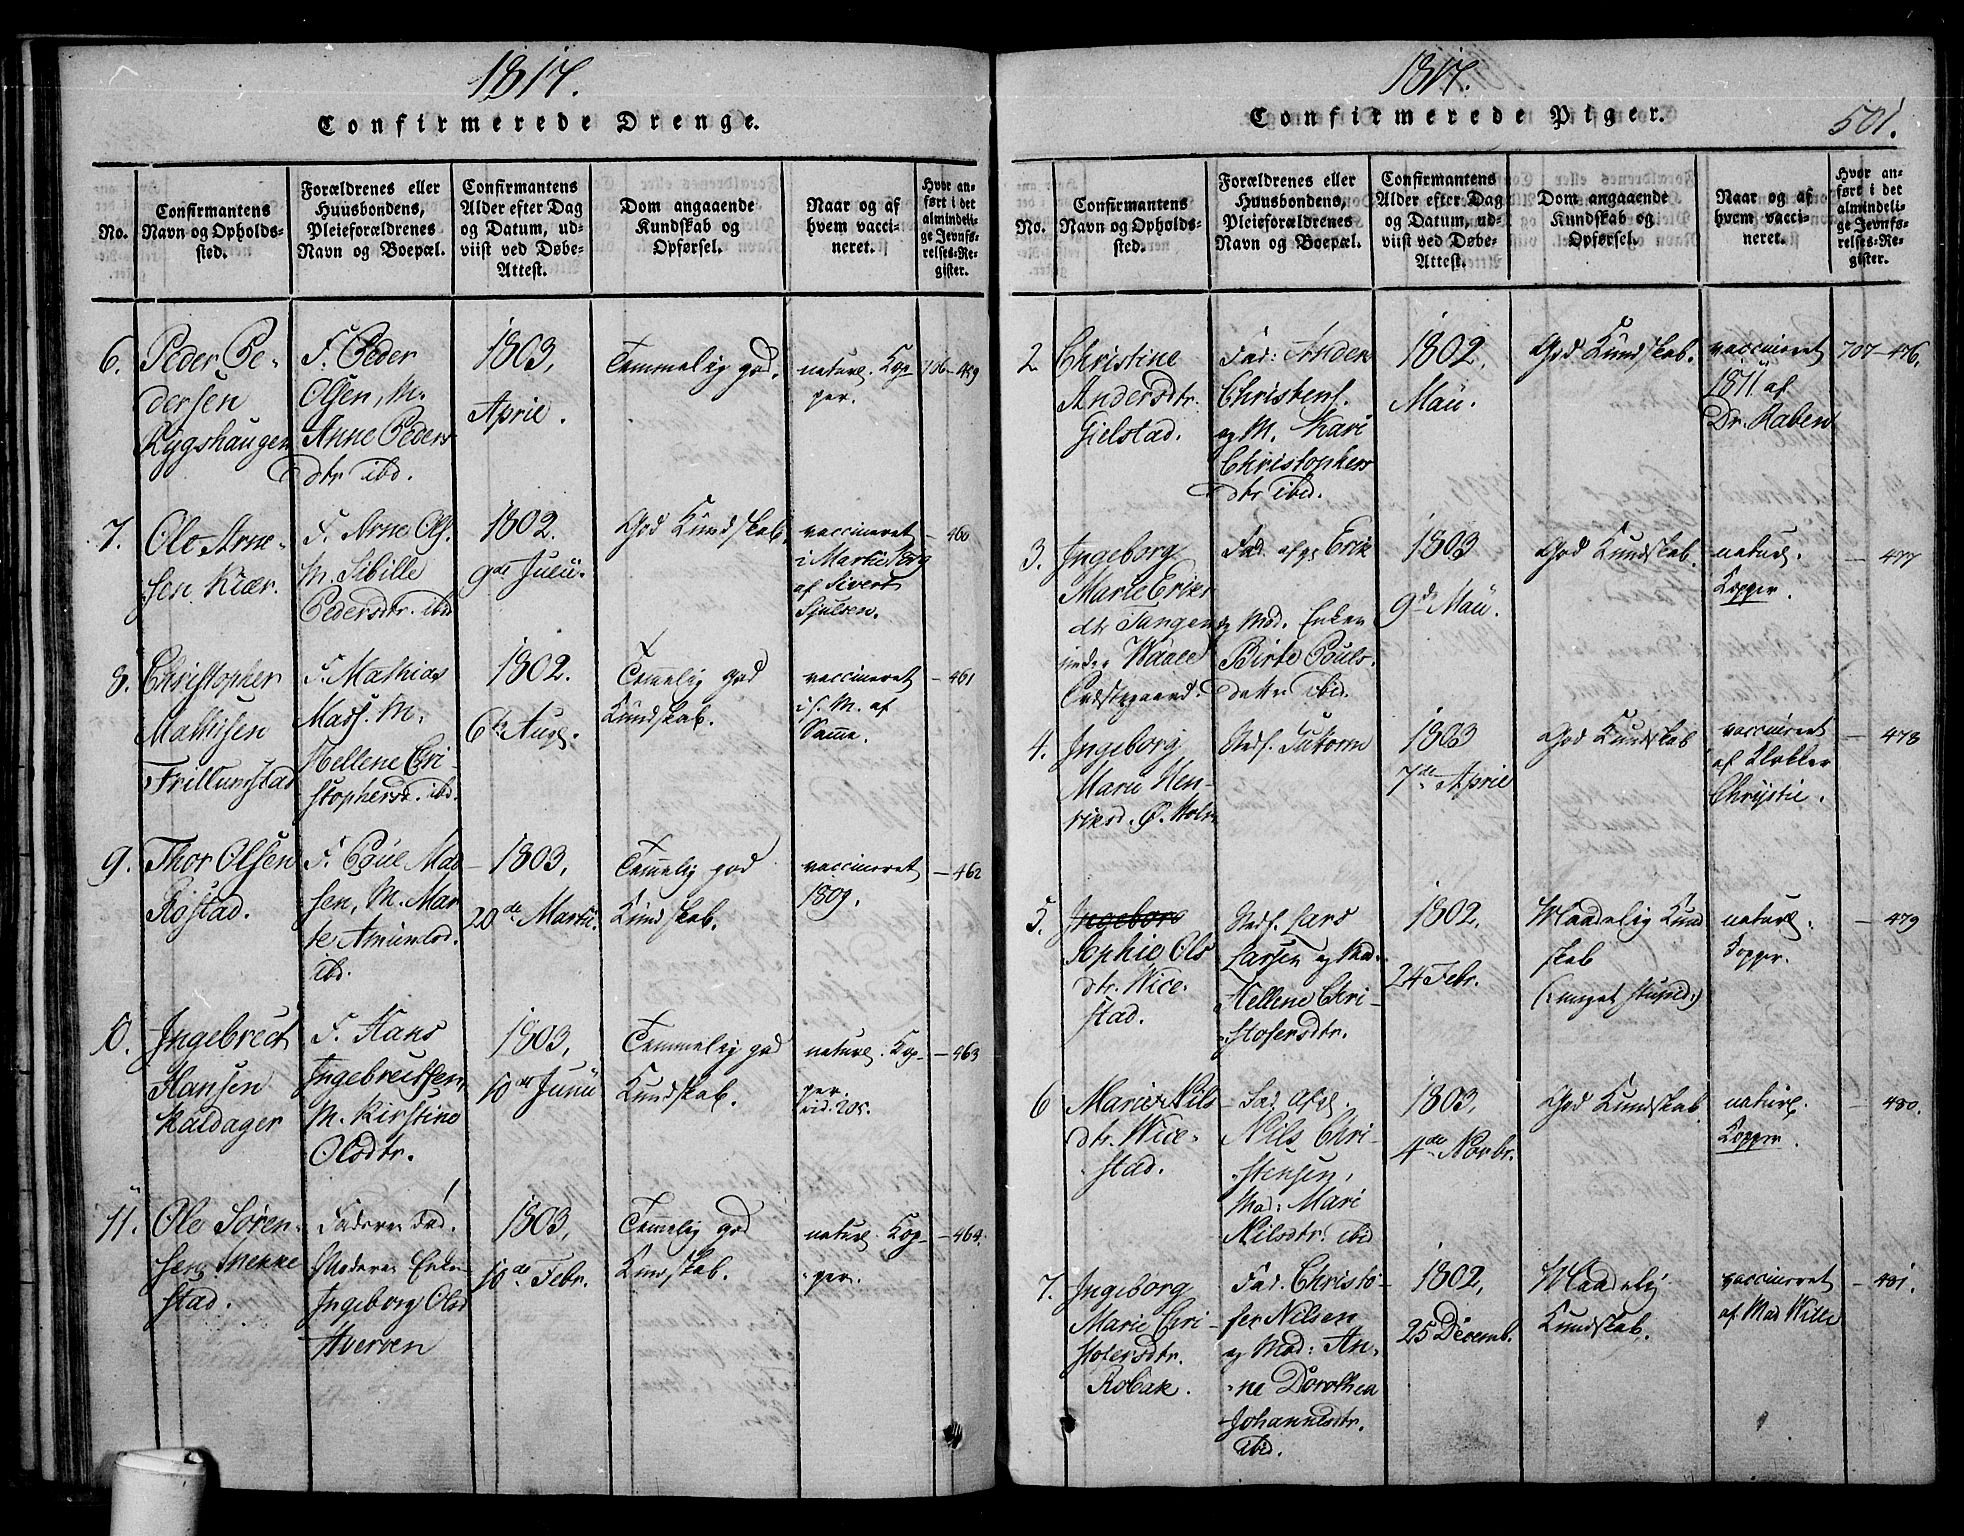 1817.
Confirmerede Drenge.
No.
Confirmantens
Navn og Opholds-
sted.
Forældrenes eller
Huusbondens,
Pleieforældrenes
Navn og Boepæl.
Confirmantens
Alder efter Dag
og Datum, ud-
viist ved Døbe-
Attest.
Dom angaaende
Kundskab og
Opførsel.
Naar og af
hvem vacci-
neret.
Hvor an-
ført i det
almindeli-
ge Jevnfø-
relses-Re-
gister.
6.
Peder Pe-
dersen
Rygshaugen
F. Peder
Olsen, M.
Anne Peders
dtr ibd.
1803,
April.
Temmelig god.
naturl. Kop
per.
706-459
7.
Ole Arne-
sen Kiær.
F. Arne Ols.
M. Sibille
Pedersdtr. ibd
1802.
9de Julii.
God Kundskab.
vaccineret
i Martii
af Sivert
Sjulsen.
- 460
8.
Christopher
Mathisen
Frillumstad
F. Mathias
Mass. M.
Hellene Chri-
stophersd. ibd.
1802.
6te Aug.
Temelig god
Kundskab.
vaccineret
i s. M. af
Samme.
- 461
9.
Thor Olsen
Rostad.
F. Poul Mad-
sen, M. Mar
te Amundsd.
ibd.
1803,
20de Martii.
Temelig god
Kundskab.
vaccineret
1809.
- 462
10.
Ingebrect
Hansen
Haldager
F. Hans
Ingebrectsen
M. Kirstine
Olsdtr.
1803,
10de Junii
Temmelig god
Kundskab.
naturl. Kop-
per.
vid. 205.
- 463
11.
Ole Søren-
sen
stad.
Faderen død.
Moderen Enke
Ingeborg Olsd
Hverven
1803,
10de Febr.
Temelig god
Kundskab.
naturl. Kop-
per.
- 464.
1817.
501.
Confirmerede Piger.
No.
Confirmantens
Navn og Opholds-
sted.
Forældrenes eller
Huusbondens,
Pleieforældrenes
Navn og Boepæl.
Confirmantens
Alder efter Dag
og Datum, ud-
viist ved Døbe-
Attest.
Dom angaaende
Kundskab og
Opførsel.
Naar og af
hvem vacci-
neret.
Hvor an-
ført i det
almindeli-
ge Jevnfø-
relses-Re-
gister.
2.
Christine
Andersdtr.
Gielstad.
Fad: Anders
Christens.
og M. Kari
Christophers
dtr ibid.
1802.
Maii.
God Kundskab.
vaccineret
1811. af
Dr. Raben
707-476.
3.
Ingeborg
Marie Eriks
dtr Tangen
under Waale
Præstegaard.
Fad. afg. Erik
og Mod. Enken
Birte Pouls-
datter ibid.
1803
9de Maii.
God Kundskab.
naturl.
Kopper.
- 477
4.
Ingeborg
Marie Hen-
riksd. Ø. Holm
Huusf.
1803
7de April
God Kundskab
vaccineret
af Klokker
Christie.
- 478
5.
Ingeborg
Sophie Ols
dtr. Wice-
stad.
Huusf. Lars
Larsen og Mad.
Hellene Chri-
stofersdtr.
1802.
24 Febr.
Maadelig Kund
skab
(: meget stupid :)
naturl.
Kopper.
- 479
6
Marie Nils
dtr. Wice-
stad.
Fad. afg.
Nils Chri-
stensen,
Mod: Mari
Nilsdtr. ibid
1803,
4de Novbr.
God Kundskab
naturl.
Kopper.
- 480.
7.
Ingeborg
Marie Chri-
stofersdtr.
Robak.
Fad. Christo-
fer Nilsen
og Mod: An-
ne Dorothea
Johannesdtr.
ibid.
1802,
25 Decemb.
Maadelig
Kundskab.
vaccineret
af Mad Wille
- 481.